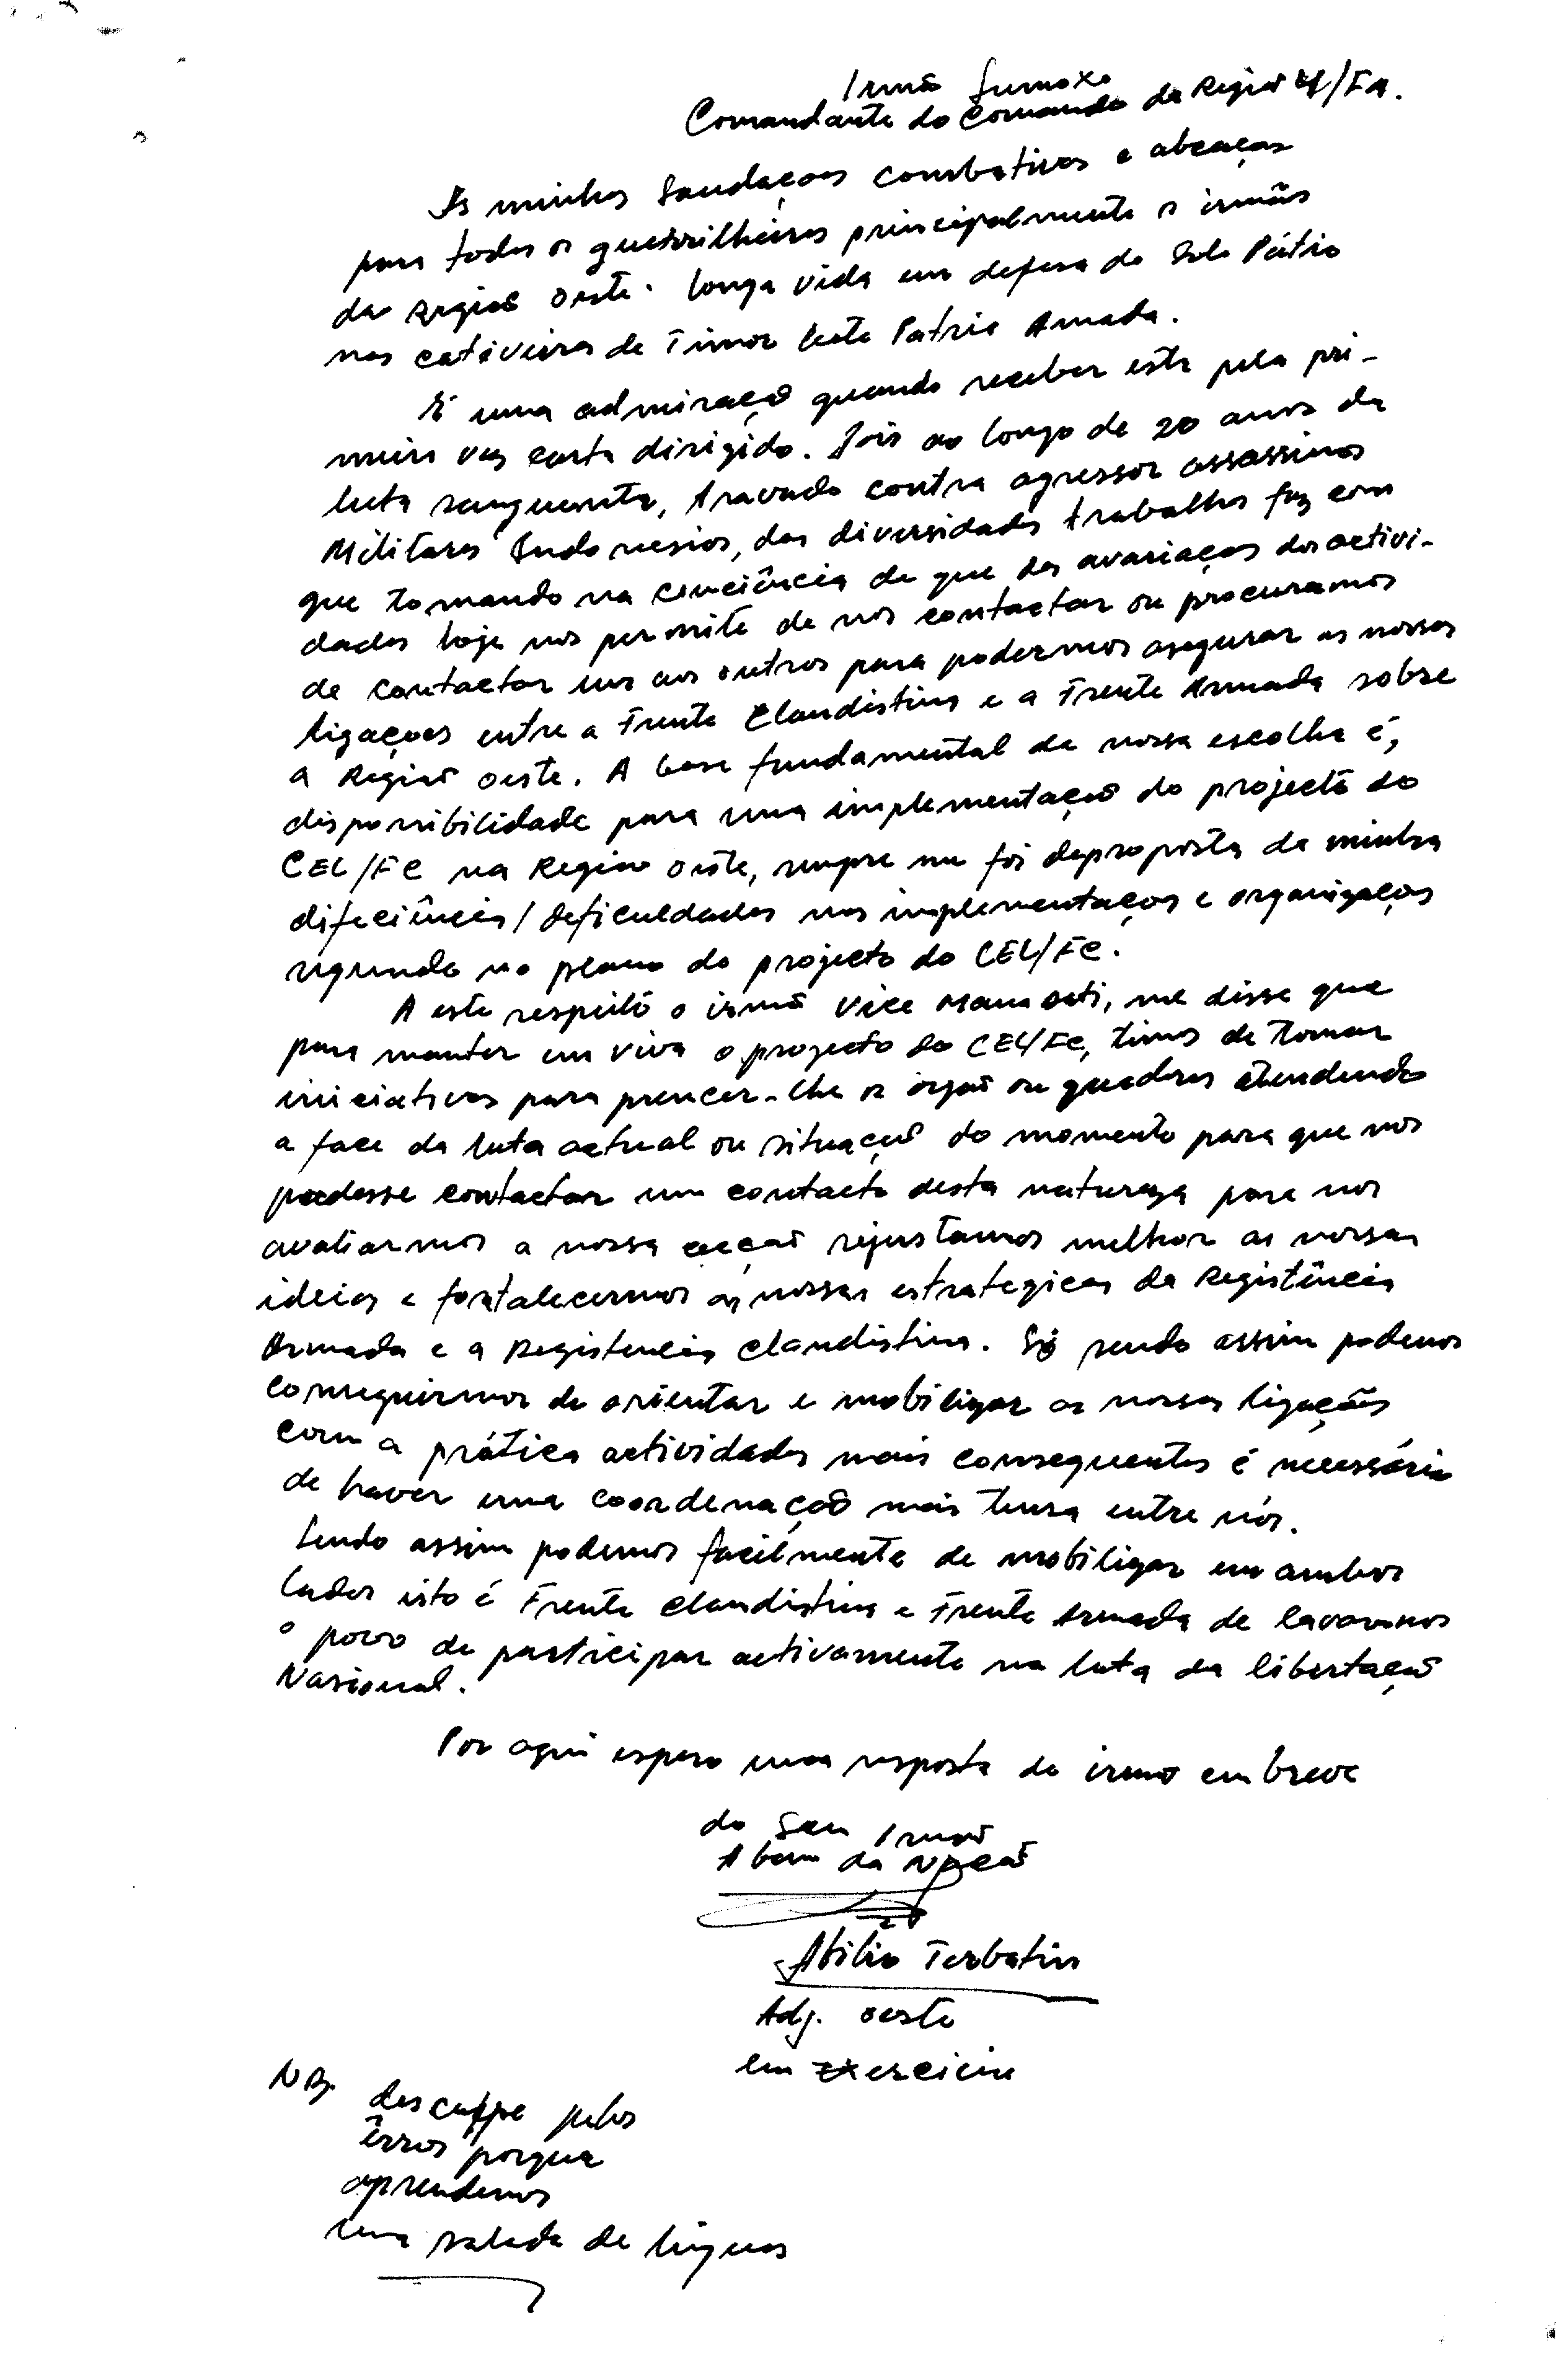 Irmão Sumoxo
Comandante do Comando da Região 4/FA.
As minhas Saudaçoes combativas e abraços
para todos os guerrilheiros principalmente o irmãos
da Região Oeste. Longa vida em defesa do Solo Pátrio
nos cativeiros de Timor Leste Patria Amada.
É uma admiração quando receber esta pela pri-
meira vez carta dirigido. Pois ao longo de 20 anos da
luta sanguenta, travado contra agressor assassinos
Militares Indonesios, das diversidades trabalhos faz com
que tomando na conciência de que das avariaços dos activi-
dades hoje nos permite de nos contactar ou procuramos
de contactar uns aos outros para podermos asegurar as nossas
ligaçoes entre a Frente Clandistina e a Frente Armada sobre
a Região oeste. A base fundamental de nossa escolha é,
disponibilidade para uma implementação do projecto do
CEL/FC na Região oeste, sempre me foi deproposta da minha
dificiência/deficuldades nas implementaços e organizaços
segundo no plano do projecto do CEL/FC.
A este respeito o irmão Vice Mau oeti, me disse que
para manter em viva o projecto do CEL/FC, timos de tomar
iniciativas para prencer-lhe os orgão ou quadros atendendo
a face da luta actual ou situação do momento para que nos
podesse contactar um contacto desta natureza para nos
avaliarmos a nossa acção rejustamos melhor as nossas
ideias e fortalecermos as nossas estrategicas da Registência
Armada e a Registencia Clandistina. Só sendo assim podemos
conseguirmos de orientar e mobilizar as nossas ligações
com a prática actividades mais consequentes é necessário
de haver uma coordenação mais tensa entre nós.
Sendo assim podemos facilmente de mobilizar em ambos
lados isto é Frente clandistina e Frente Armada de lavarmos
o povo de participar activamente na luta da libertação
Nasional.
Por aqui espero uma resposta do irmão em breve
do Seu Irmão
A bem da Nação
Abilio Terbatin
Adj. oeste
em Exercicio
NB. desculpe pelos
êrros porque
aprendemos
uma salada de linguas